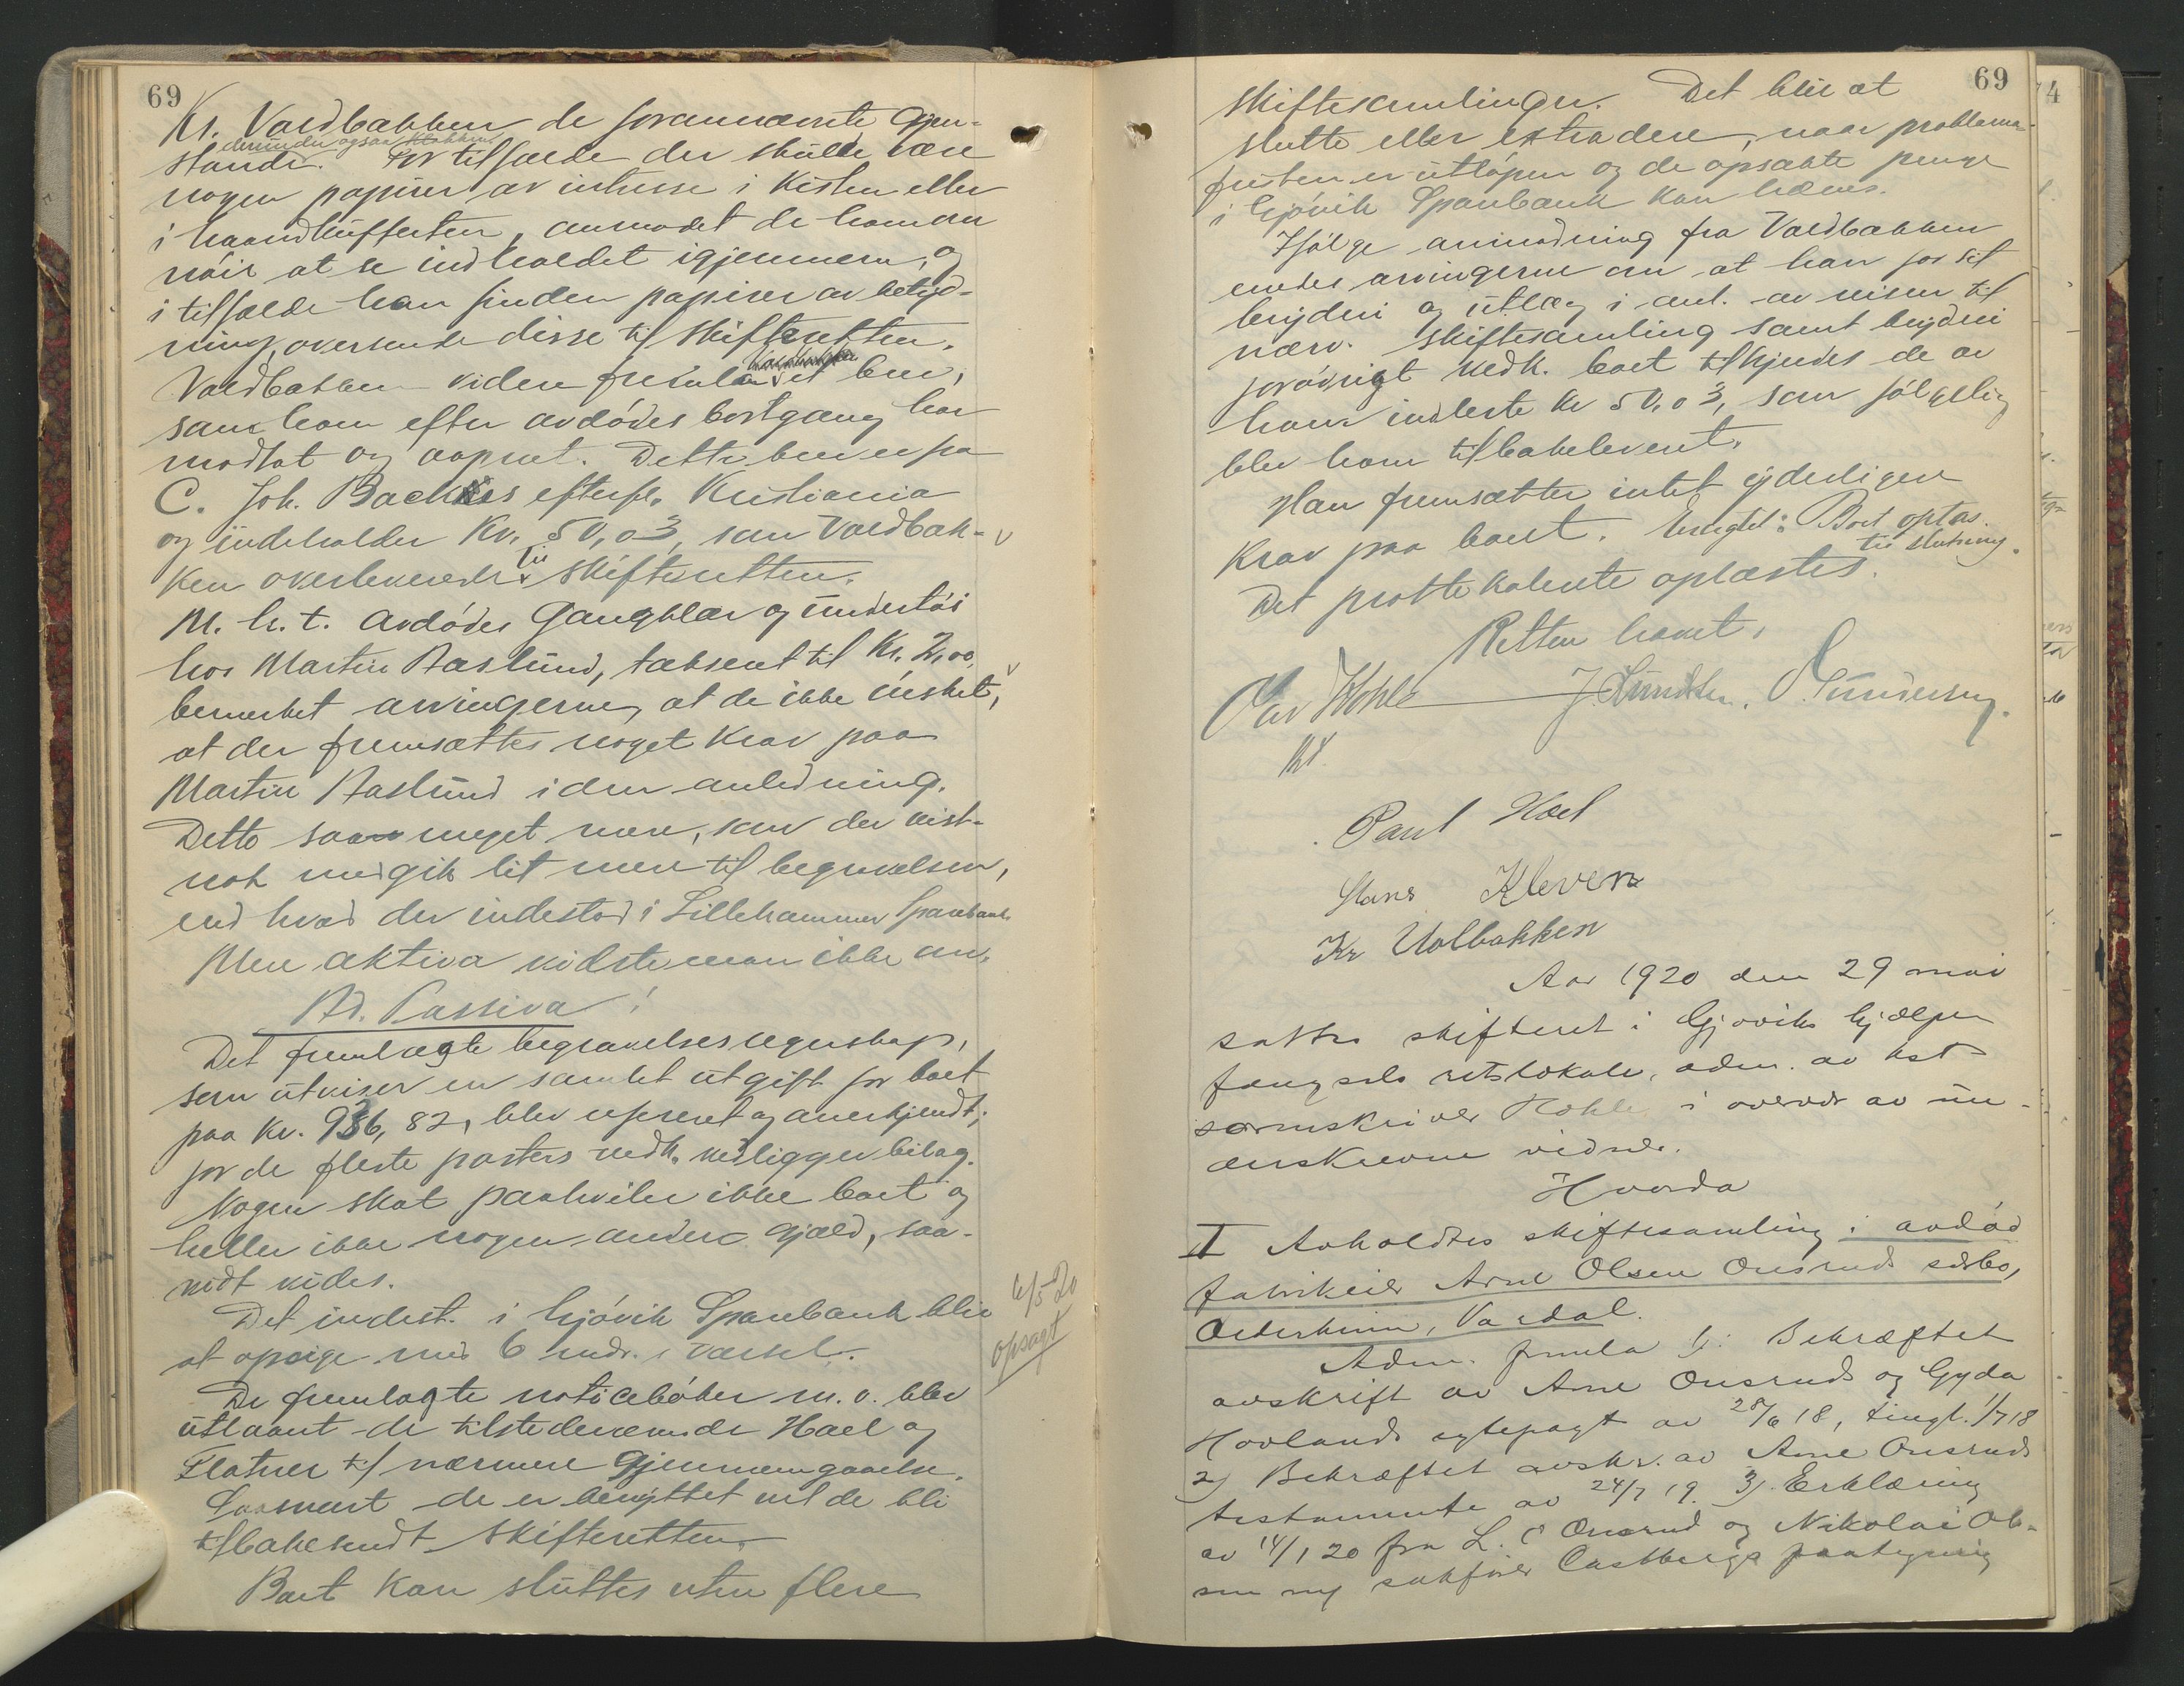 69
Kr. Voldbakken de forannævnte gjen-
derunder ogsaa klokken
stande. For tilfælde der skulde være
nogen papirer av intresse i kisten eller
i haandkufferten, anmodet de ham om
nöie at se indholdet igjennem, og
i tilfælde han finder papirer av betyd-
ning, oversende disse til skifteretten.
Voldbakken videre fremla et brev,
som han efter avdödes bortgang har
modtat og aapnet. Dette brev er fra
C. Joh. Backes efterfl. Kristiania
og indeholder Kr. 50,03, som Voldbak-
ken overleverede til skifteretten.
M. h. t. avdödes Gangklær og undertöi
hos Martin Aaslund, taksert til Kr. 2,00,
bemerket arvingerne, at de ikke önsket,
at der fremsættes noget krav paa
Martin Aaslund i den anledning.
Dette saa meget mere, som der vist-
nok medgik lit mere til begravelsen,
end hvad der indestod i Lillehammer Sparebank
Mere aktiva vidste man ikke om.
Ad. Passiva!
Det fremlagte begravelsesregnskap,
som utviser en samlet utgift for boet
paa Kr. 936,82, blev refereret og anerkjendt;
for de fleste posters vedk. vedligger bilag.
Nogen skat paahviler ikke boet og
heller ikke nogen anden gjæld, saa-
vidt vides.
Det indest. i Gjövik Sparebank blir
at opsige med 6 mdr.s varsel.
6/5 20
opsagt
De fremlagte noticeböker m. v. blev
utlaant de tilstedeværende Hoel og
Flatner til nærmere gjennemgaaelse.
Saasnart de er benyttet vil de bli
tilbakesendt skifteretten.
Boet kan sluttes uten flere
69
skiftesamlinger. Det blir at
slutte eller extradere, naar proklama-
fristen er utlöpen og de opsakte penge
i Gjövik Sparebank kan hæves.
Ifölge anmodning fra Voldbakken
enedes arvingerne om at han for sit
bryderi og utlæg i anl. av reisen til
nærv. skiftesamling samt bryderi
forövrigt vedk. boet tilkjendes de av
ham indleverte kr 50,03, som fölgelig
blev ham tilbakelevert.
Han fremsætter intet yderligere
krav paa boet. Eragtet: Boet optas
til slutning.
Det protokollerte oplæstes.
Retten hævet.
Hohle J. Lundsten. Gundersen.
Paul Hoel
Hans Kleven
Kr Volbakken
Aar 1920 den 29 mai
sattes skifteret i Gjøviks hjælpe
fængsels retslokale, adm. av kst
sorenskriver Hohle i overvær av un-
derskrevne vidner.
Hvorda
I Avholdtes skiftesamling i avdød
fabrikeier Arne Olsen Onsruds særbo,
Vardal.
Adm. fremla 1. Bekræftet
avskrift av Arne Onsruds og Gyda
Hovlands egtepagt av 28/6 18, tingl. 1/7 18
2) Bekræftet avskr. av Arne Onsruds
testamente av 24/7 19. 3) Erklæring
av 14/1 20 fra L. O Onsrud og Nikolai Ol-
sen med sakfører Castbergs paategning